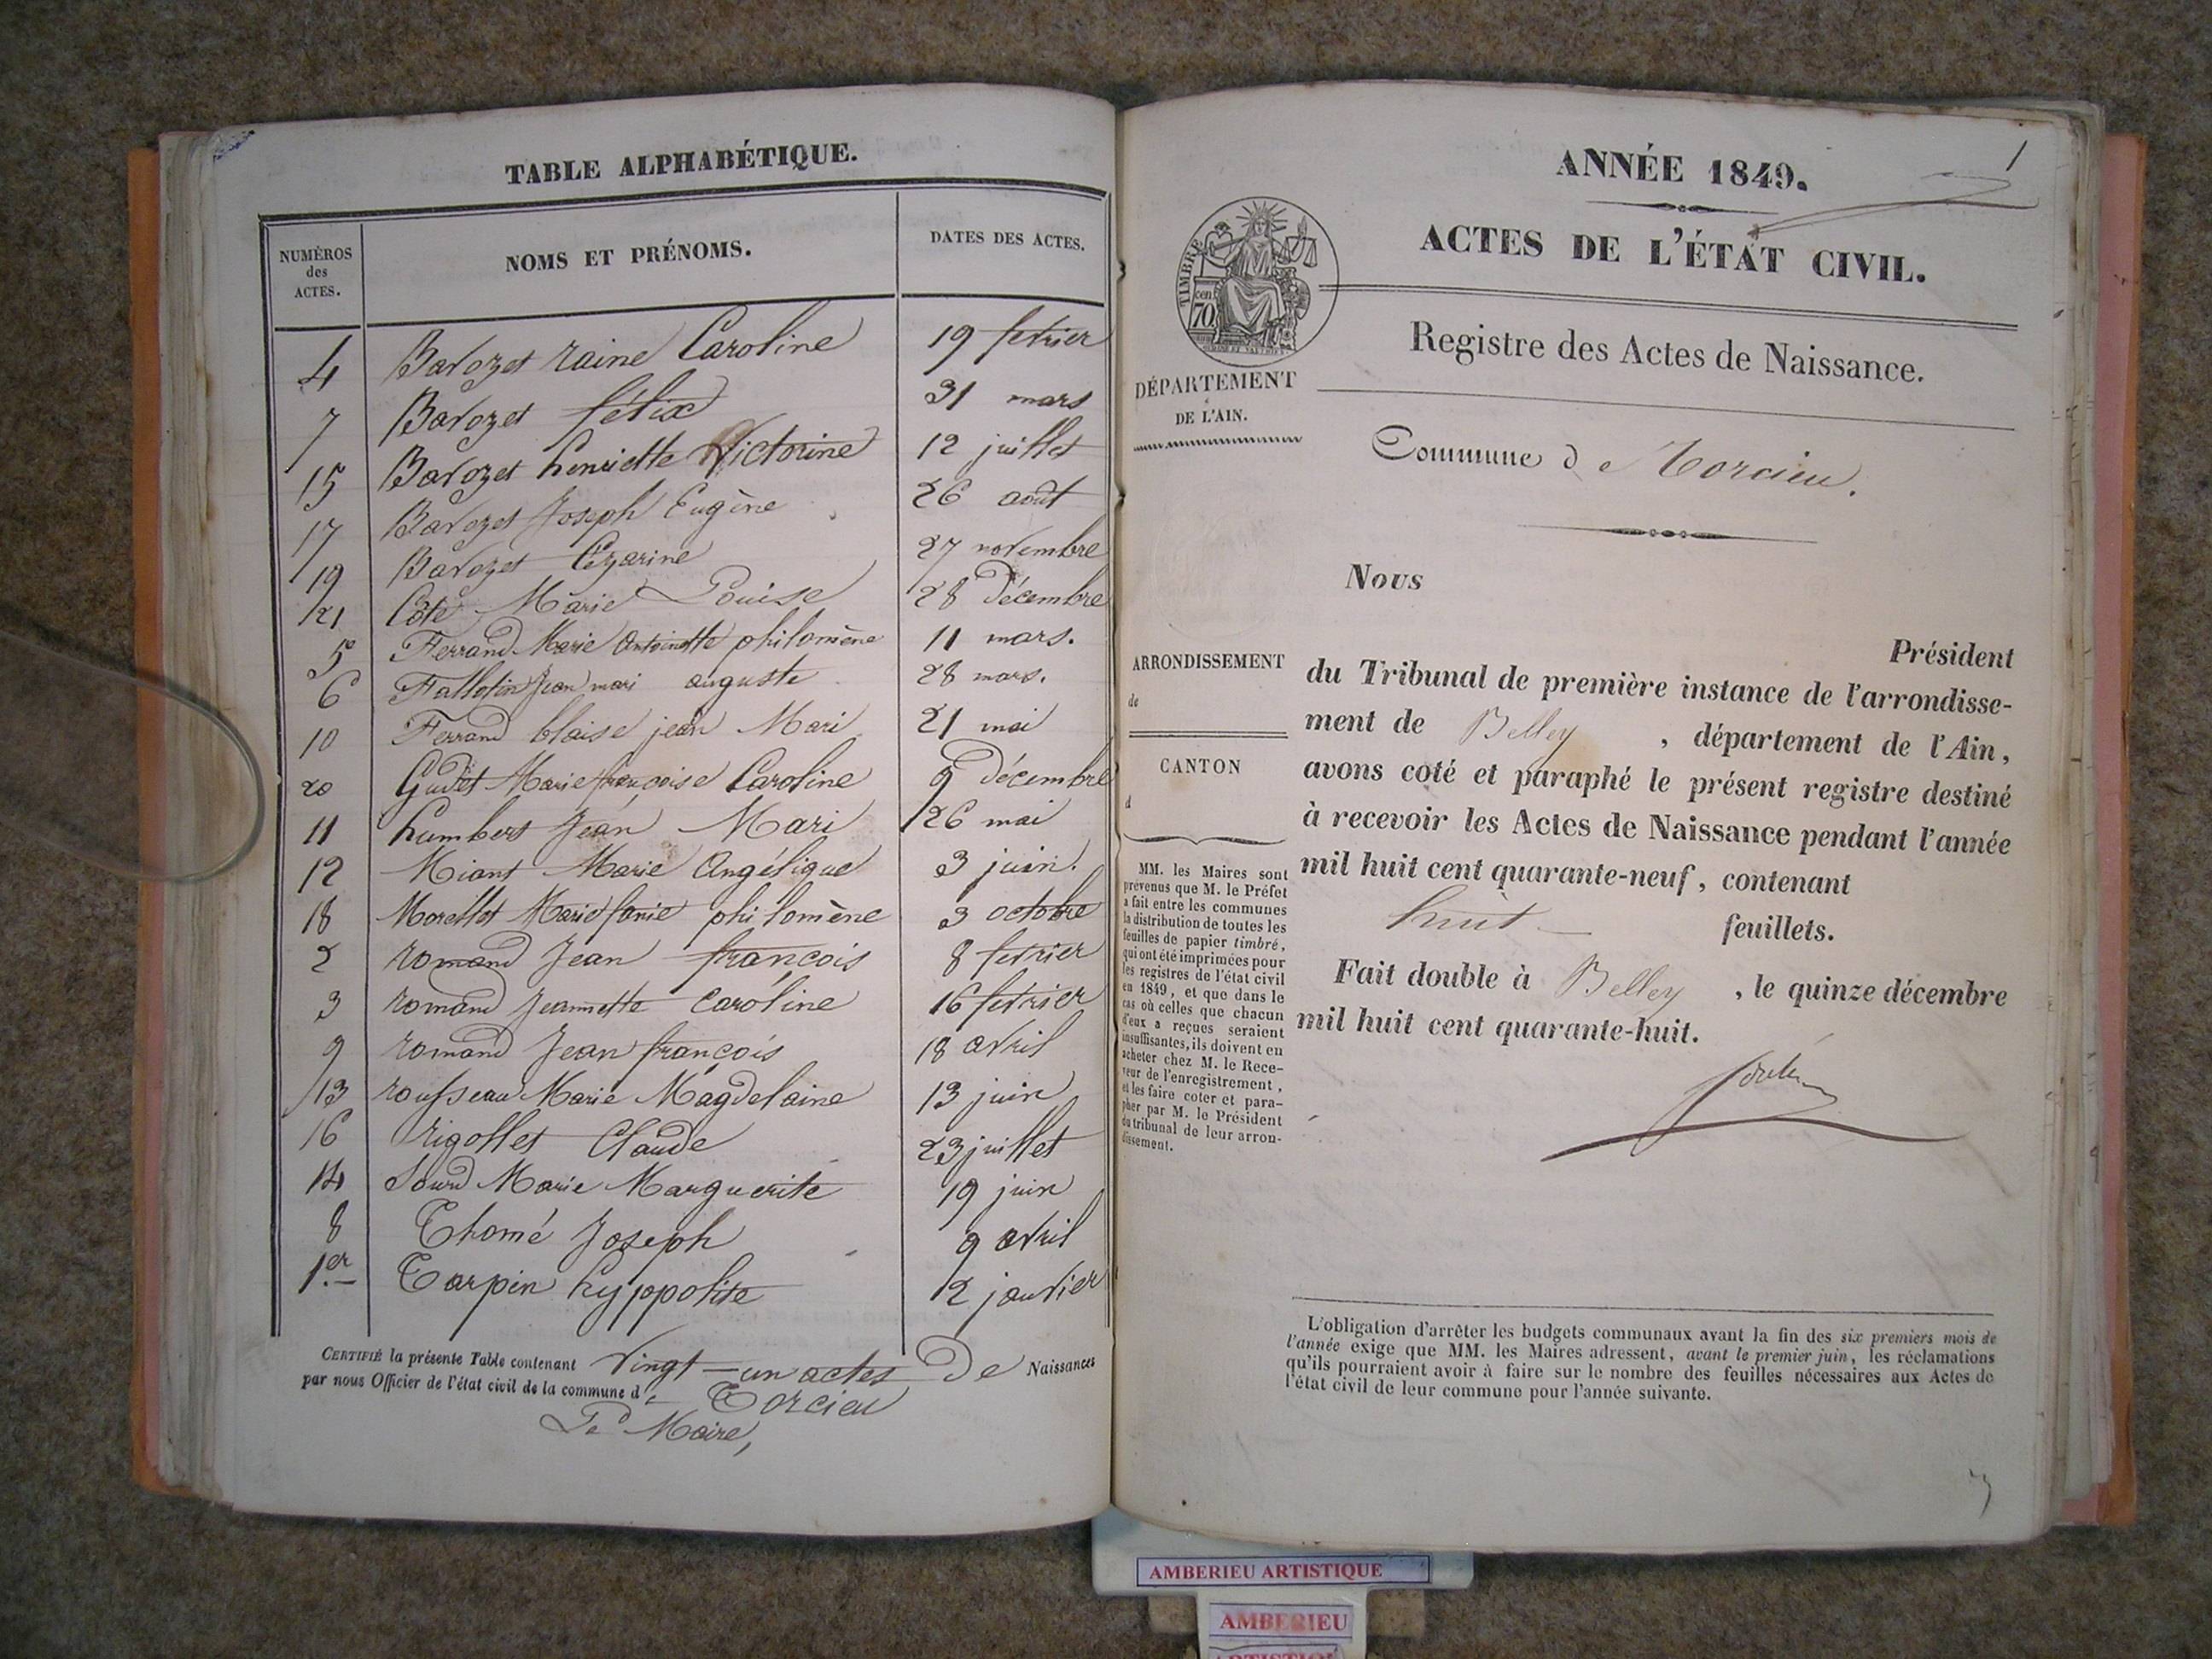 TABLE ALPHABÉTIQUE.
NUMÉROS des ACTES. NOMS ET PRÉNOMS. DATES DES ACTES.
4 Bavozet raine Caroline 19 fevrier
7 Bavozet félix 31 mars
15 Bavozet henriette Victorine 12 juillet
17 Bavozet Joseph Eugène 26 août
19 Bavozet Cézarine 27 novembre
21 Côte Marie Louise 28 Décembre
5 Ferrand Marie Antoinette philomène 11 mars.
6 Fallotin Jean mari auguste 28 mars.
10 Ferrand blaise jean Mari 21 mai
20 Gudet Marie françoise Caroline 9 Décembre
11 humbert Jean Mari 26 mai
12 Miant Marie Angélique 3 juin.
18 Morellet Marie fanie philomène 3 octobre
2 romand Jean françois 8 fevrier
3 romand Jeannette Caroline 16 fevrier
9 romand Jean françois 18 avril
13 rousseau Marie Magdelaine 13 juin
16 rigollet Claude 23 juillet
14 Sourd Marie Marguerite 19 juin
8 Thomé Joseph 9 avril
1er Tarpin hyppolite 2 janvier
CERTIFIÉ la présente Table contenant Vingt-un actes De Naissances
par nous Officier de l'état civil de la commune de Torcieu
Le Maire,
1
ANNÉE 1849.
ACTES DE L'ÉTAT CIVIL.
TIMBRE
70 cen
DÉPARTEMENT
DE L'AIN.
Registre des Actes de Naissance.
Commune de Torcieu.
Nous
Président
ARRONDISSEMENT
de
CANTON
d
du Tribunal de première instance de l'arrondisse-
ment de Belley, département de l'Ain,
avons coté et paraphé le présent registre destiné
à recevoir les Actes de Naissance pendant l'année
mil huit cent quarante-neuf, contenant
huit feuillets.
Fait double à Belley, le quinze décembre
mil huit cent quarante-huit.
MM. les Maires sont
prévenus que M. le Préfet
a fait entre les communes
la distribution de toutes les
feuilles de papier timbré,
qui ont été imprimées pour
les registres de l'état civil
en 1849, et que dans le
cas où celles que chacun
d'eux a reçues seraient
insuffisantes, ils doivent en
acheter chez M. le Rece-
veur de l'enregistrement,
et les faire coter et para-
pher par M. le Président
du tribunal de leur arron-
dissement.
L'obligation d'arrêter les budgets communaux avant la fin des six premiers mois de
l'année exige que MM. les Maires adressent, avant le premier juin, les réclamations
qu'ils pourraient avoir à faire sur le nombre des feuilles nécessaires aux Actes de
l'état civil de leur commune pour l'année suivante.
AMBERIEU ARTISTIQUE
AMBERIEU
ARTISTIQUE